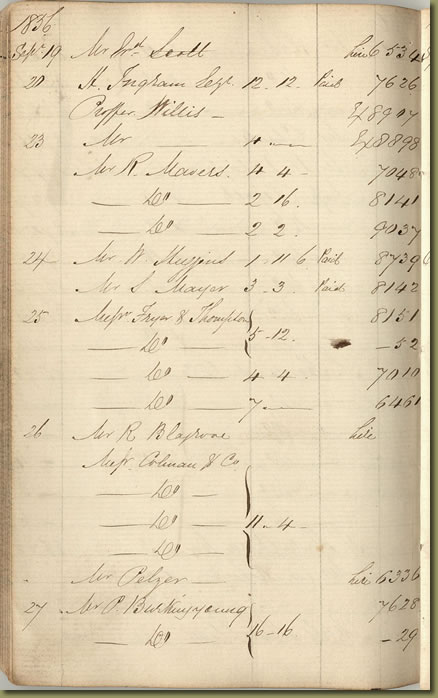 1836
Sept 19 Mr Wm Scott hire 6534
20 H. Ingram Esqr 12. 12. Paid 7626
Proffer Willis — Ex 8907
23 Mr — 4 — Ex 8898
Mr R. Mavers. 4 4 - 7048
— Do — 2 16. 8141
— Do — 2 2. 9037
24 Mr W. Huggins 1 - 11 6 Paid 8739
Mr S Mayer 3 - 3. Paid 8142
25 Messrs Fryer & Thompson 8151
— Do — 5 - 12. - 52
— Do — 4 4. 7010
— Do — 7 — 6461
26 Mr R Blagrove hire
Messrs. Colman & Co
— Do —
— Do — 11 - 4 -
— Do —
Mr Pelzer — hire 6336
27 Mr P. 7628
— Do — 16 - 16 - 29